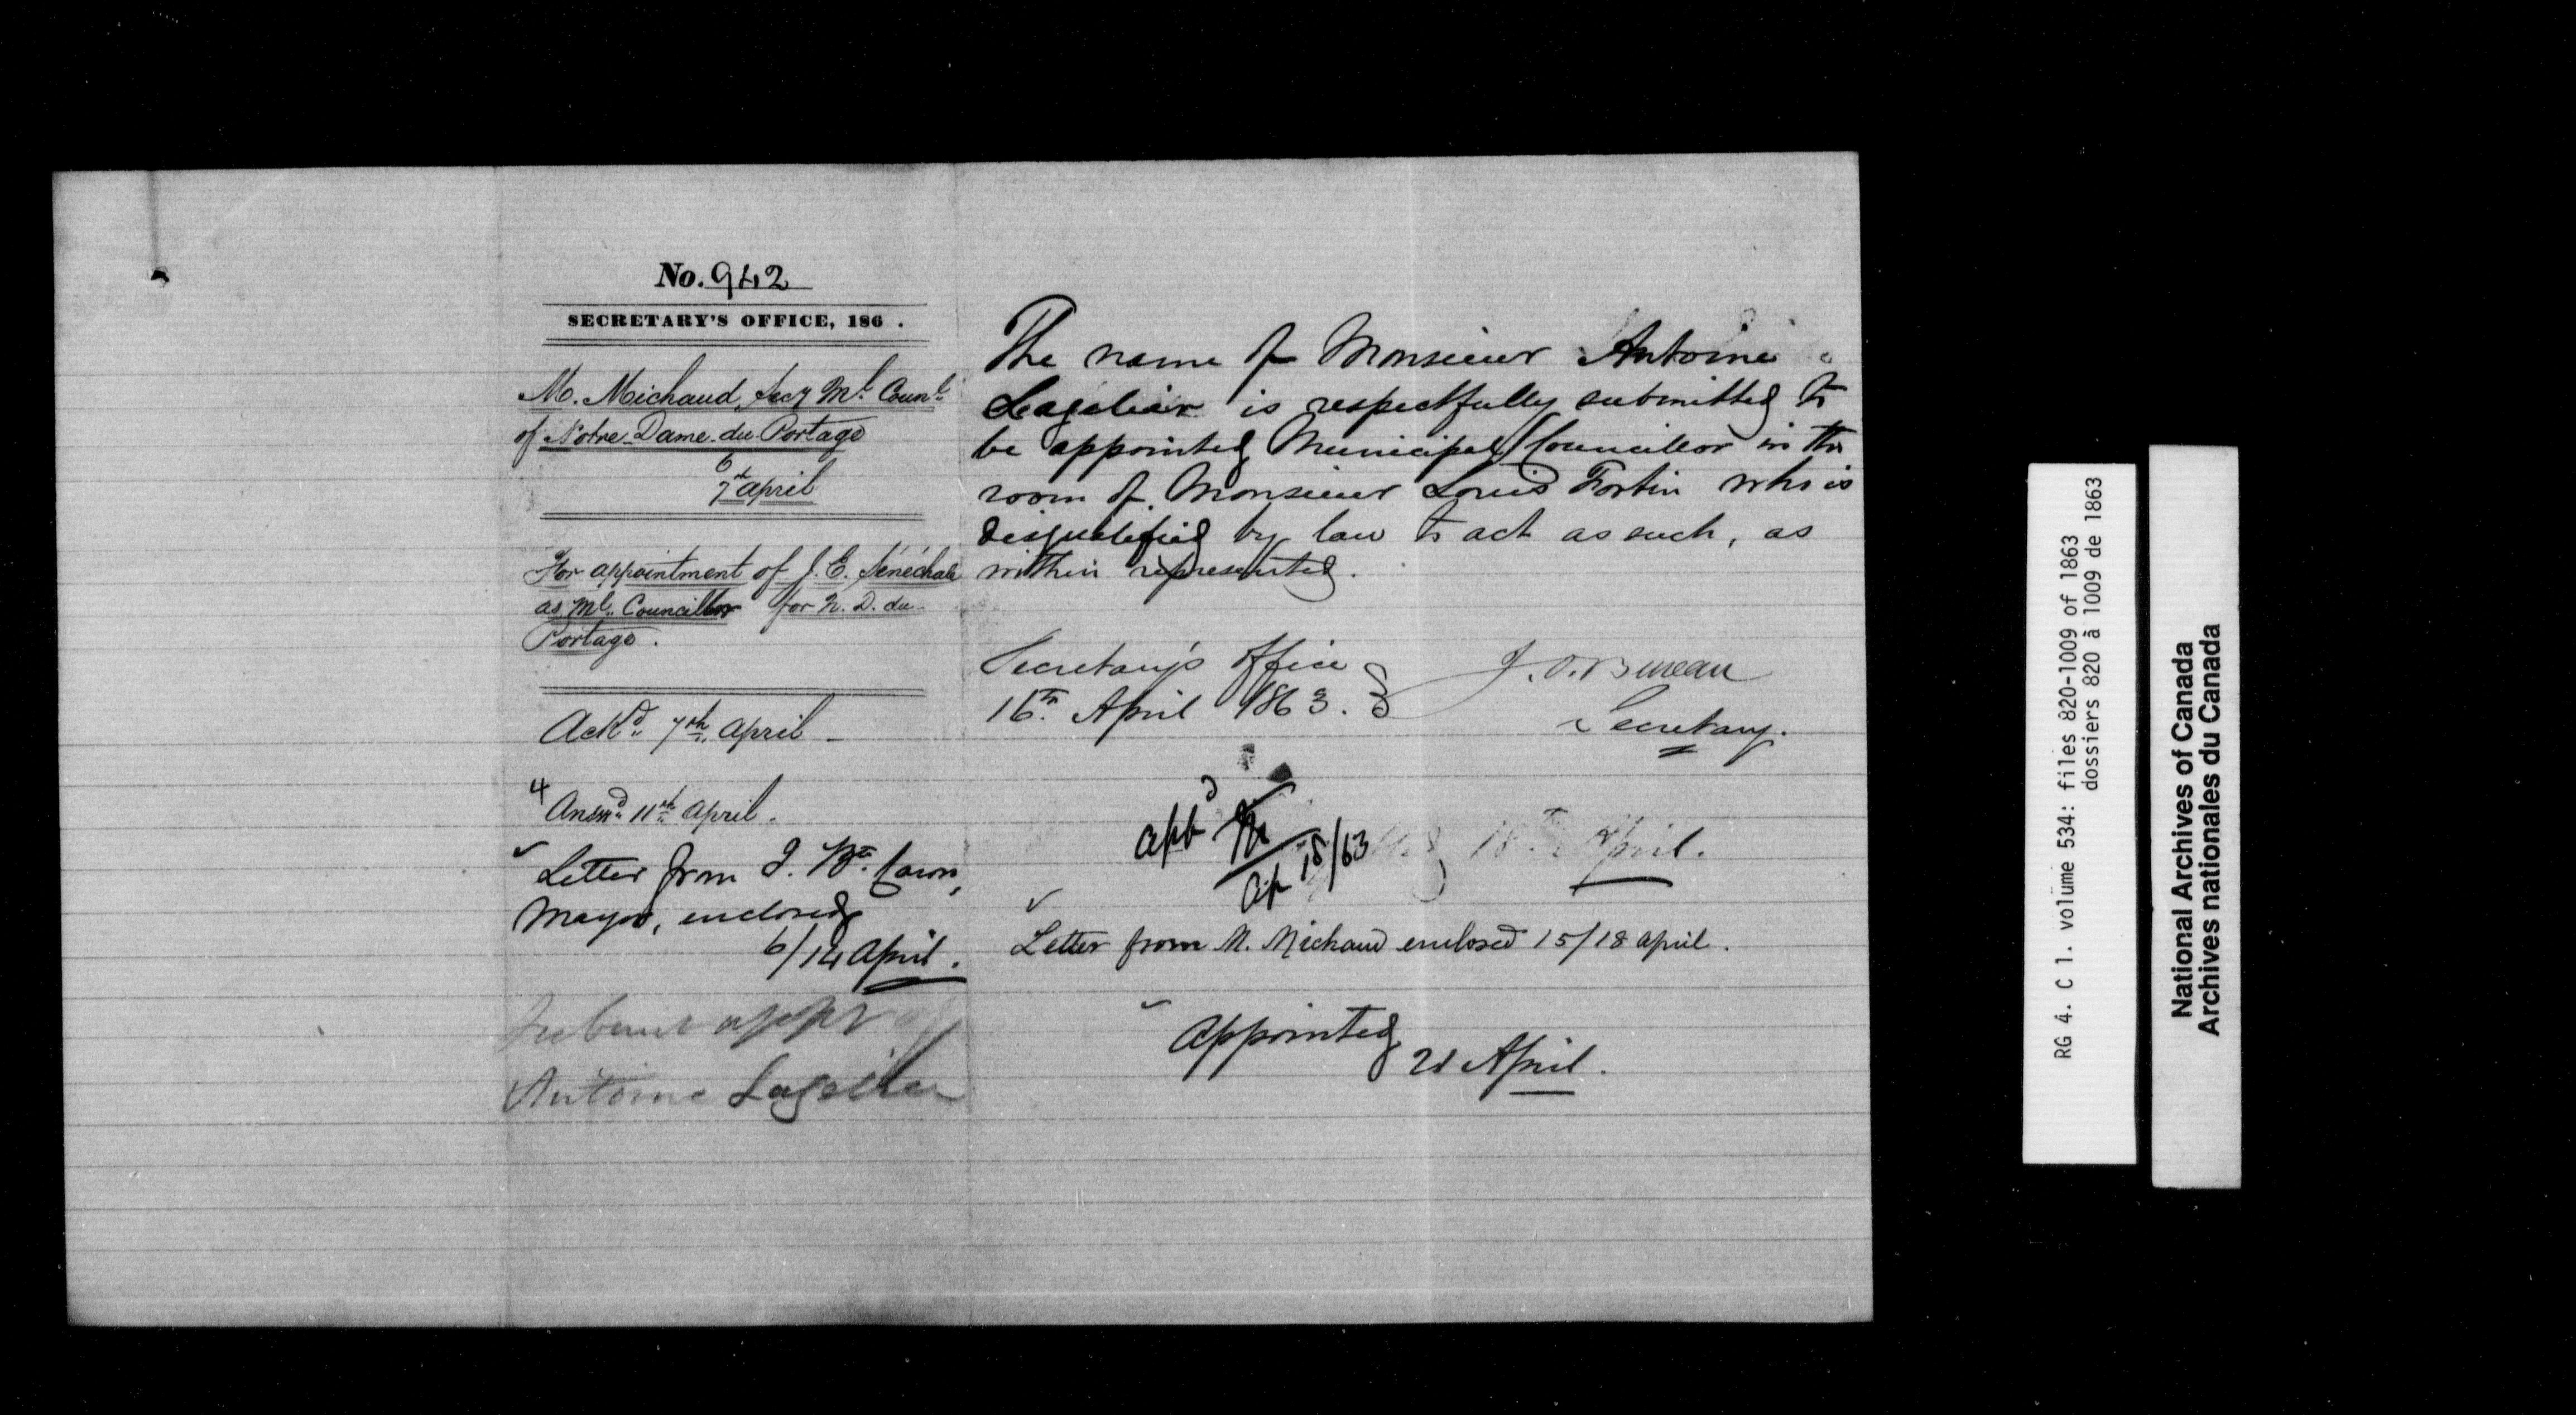 No. 942
SECRETARY'S OFFICE, 186 .
M. Michaud, Secy Ml. Counl.
of Notre-Dame-du-Portage
6
7th april
For appointment of J. E. Sénéchale
as Ml. Councillor for N. D. du
Portage.
Ackd. 7th. april -
4
Answd. 11th april.
Letter from J. Bte.
Mayor, enclosed
6/14 April.
Submit appt of
Antoine Lagelier
The name of Monsieur Antoine
Lagelier is respectfully submitted to
be appointed Municipal Councillor in the
room of Monsieur Louis Fortin who is
disqualified by law to act as such, as
within represented.
Secretary's Office
16th. April 1863.
J. O. Bureau
Secretary.
appd
ap 18/63
April.
Letter from M. Michaud enclosed 15/18 april.
Appointed 21 April.
RG 4. C 1. volume 534: files 820-1009 of 1863
dossiers 820 à 1009 de 1863
National Archives of Canada
Archives nationales du Canada